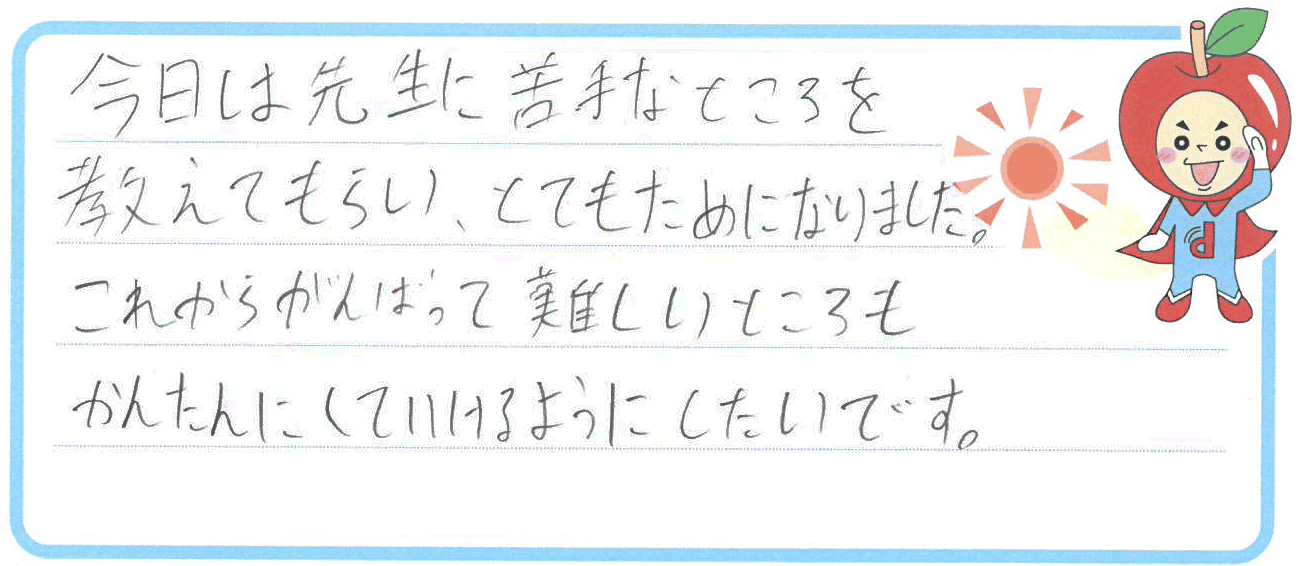 今日は先生に苦手なところを
教えてもらい、とてもためになりました。
これからがんばって難しいところも
かんたんにくていけるようにしたいです。